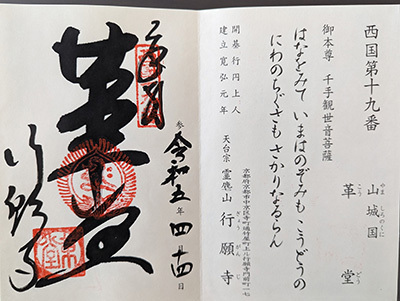 西国第十九番
山城国
やましろのくに
革堂
こうどう
御本尊 千手観世音菩薩
はなをみて いまはのぞみも こうどうの
にわのちぐさも さかりなるらん
開基 行円上人
建立 寛弘元年
京都府京都市中京区寺町通竹屋町上ル行願寺門前町一七
天台宗 霊麀山 行願寺
ぎょうがんじ
奉拝
革堂
行願寺
令和五年 四月 日